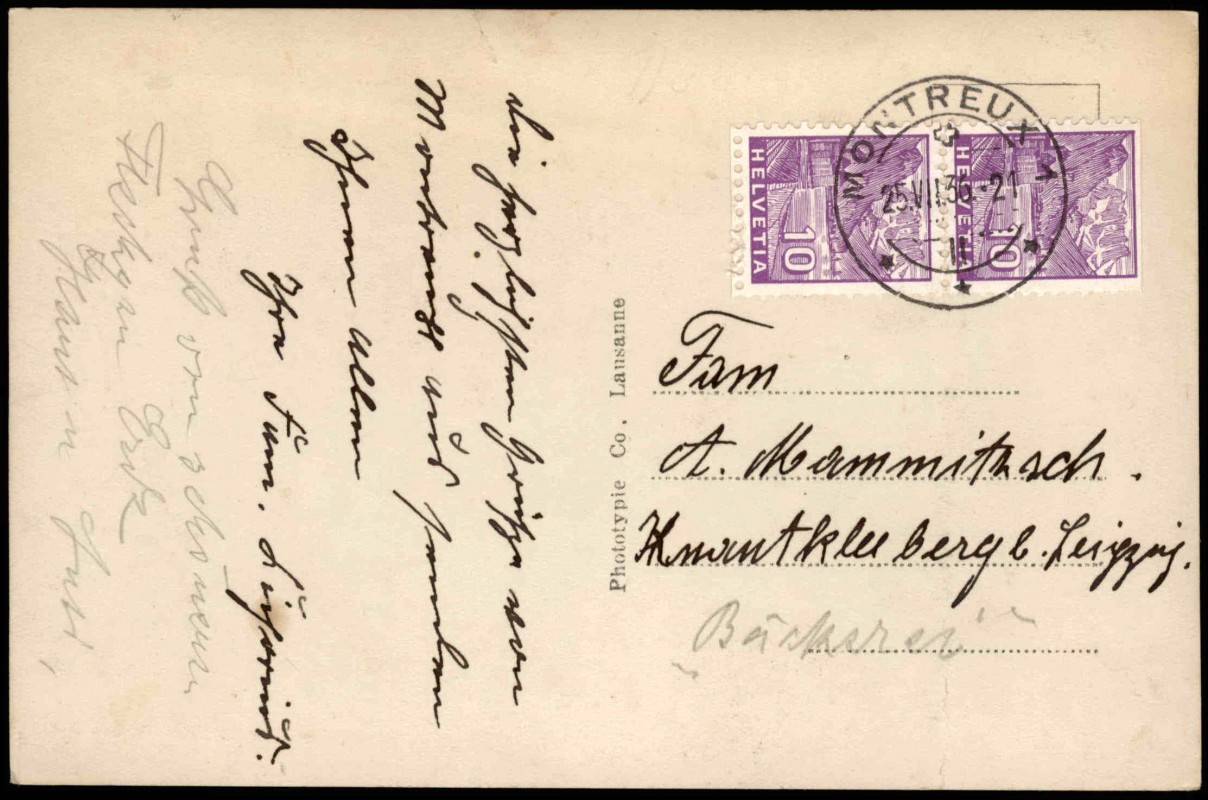 Die herzlichsten Grüße von
Montreux und senden
Ihnen Allen
Ihre Fam.
Gruß vom schönen
Erika
Phototypie Co. Lausanne
HELVETIA
10
HELVETIA
10
MONTREUX 1
25.VII.36.-21
II
Fam
A. Mammitzsch.
Knautkleeberg b. Leipzig.
"Bäckerei"